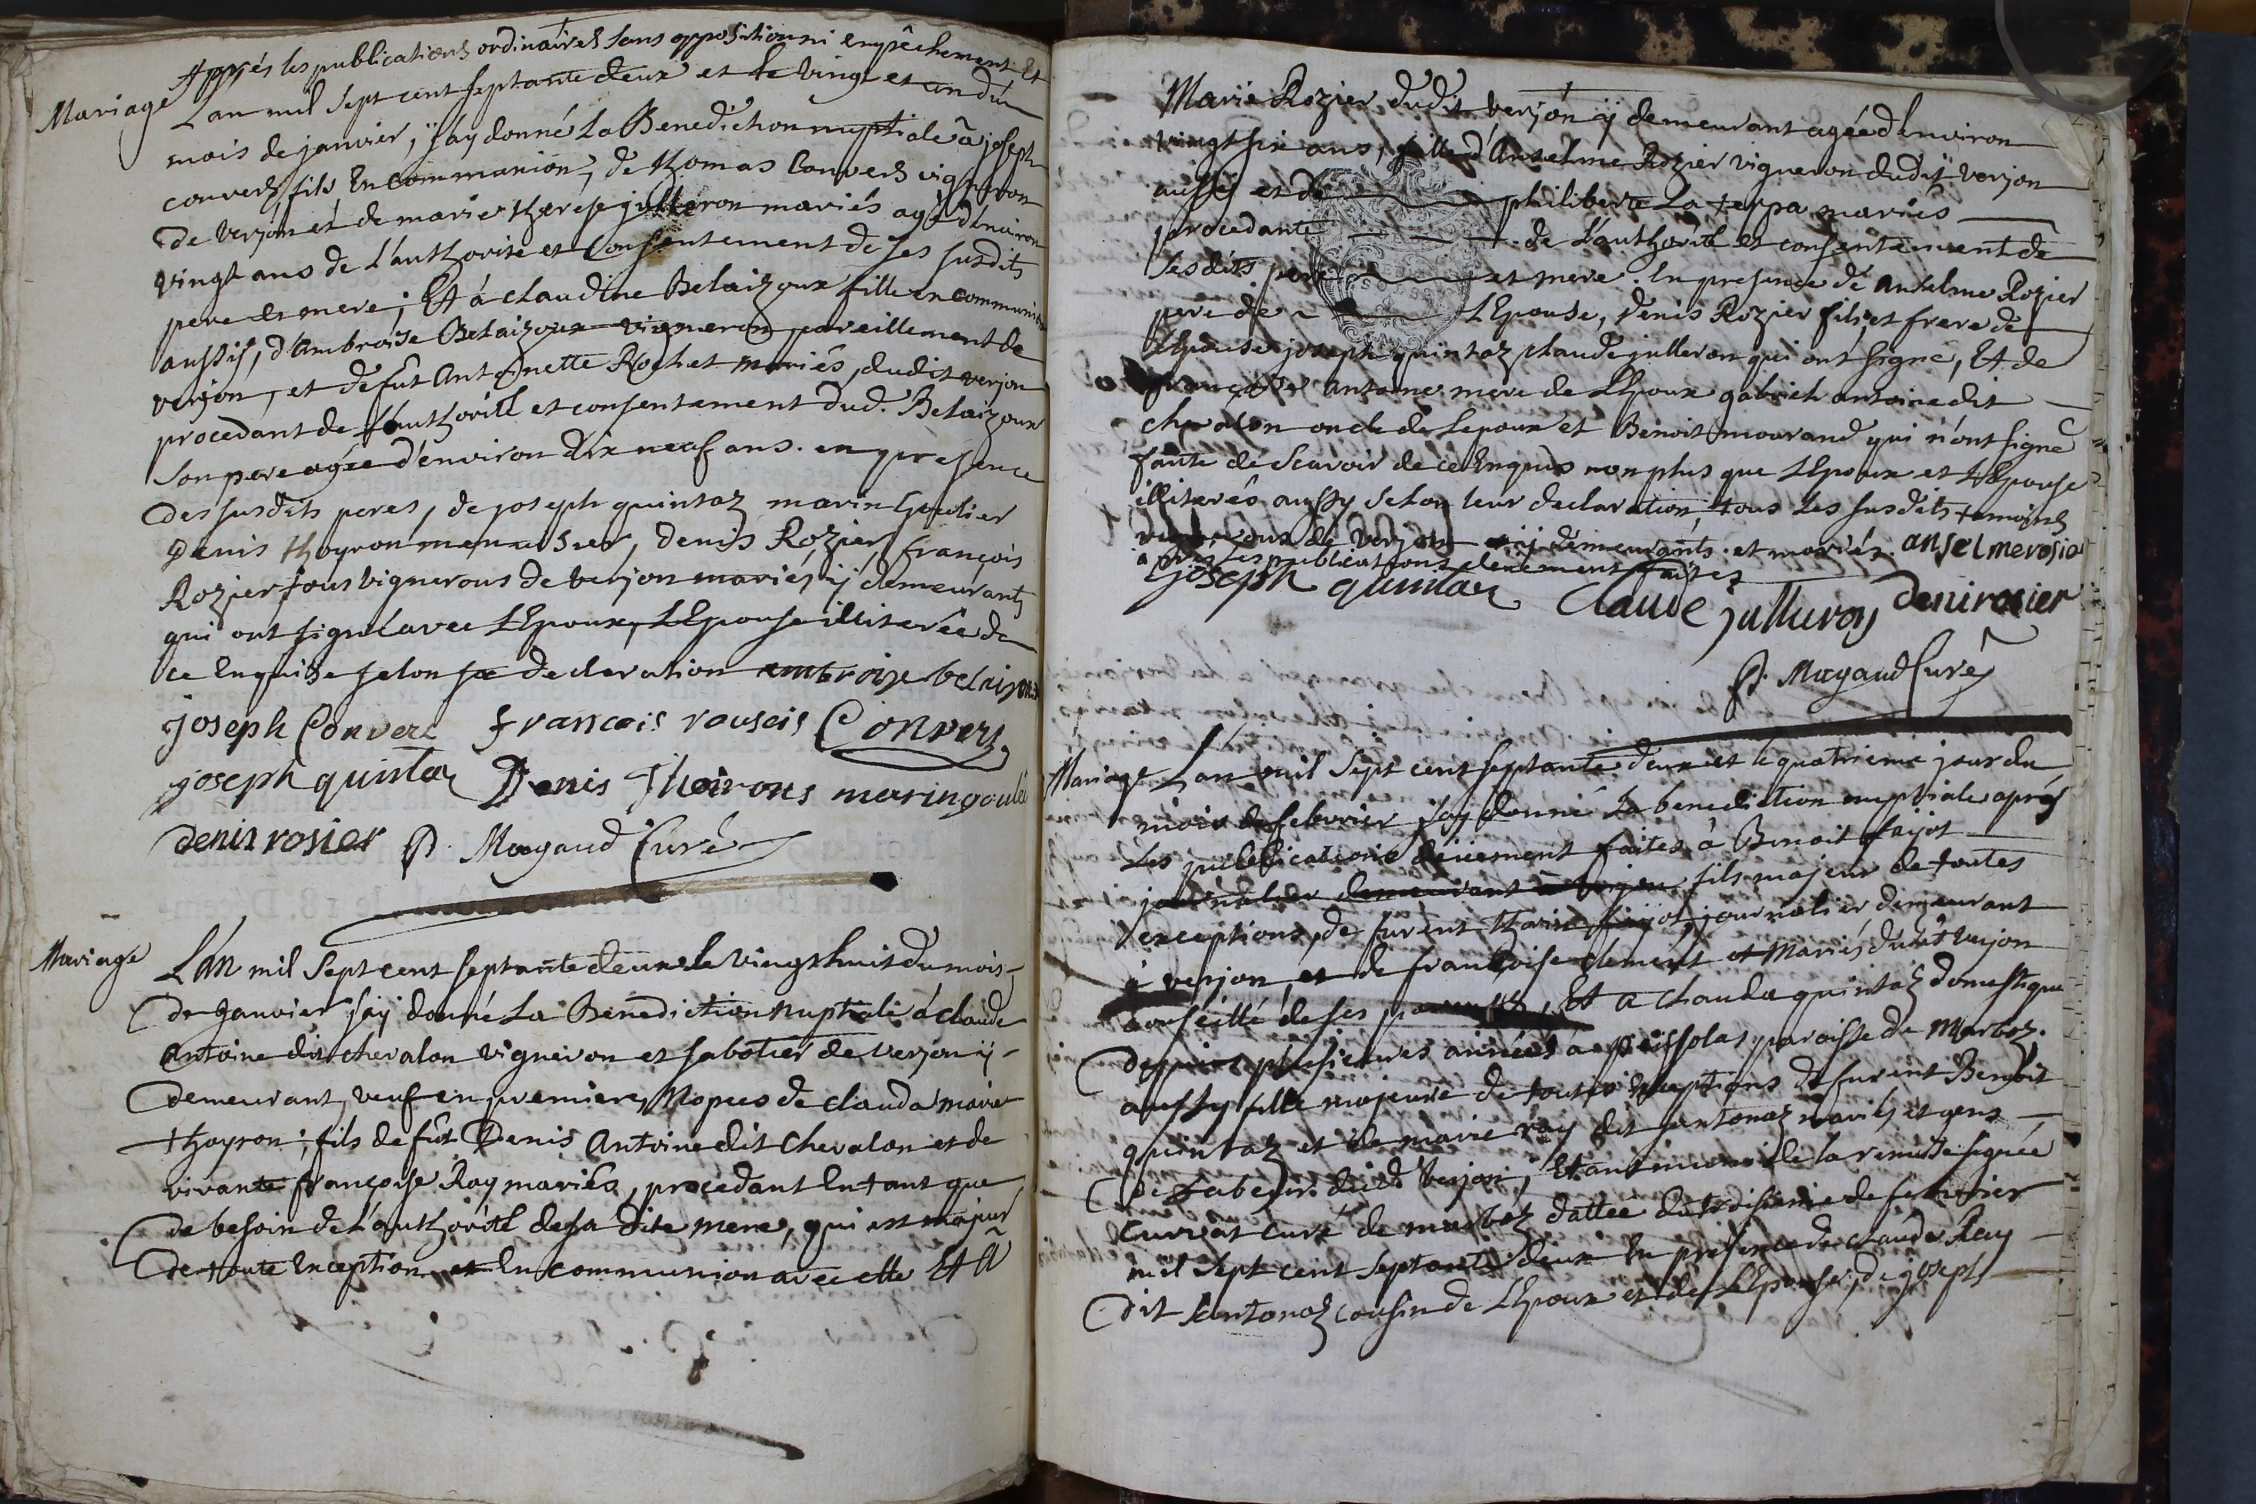 Apprés les publications ordinaires sans opposition ni empêchement Et
Mariage Lan mil sept cent septante deux et le vingt et un du
mois de janvier, j'ay donné La Benediction nuptiale à joseph
convers, fils En communion, de thomas Convers vigneron
de verjon et de marie therese julleron mariés agé d'environ
vingt ans de L'authorité et Consentement de ses susdits
pere et mere; Et á claudine Belaizoux fille en communion
aussi, d'Ambroise Belaizoux vigneron pareillement de
verjon, et defût Antoinette Rochet mariés, dudit verjon
procedant de L'authorité et consentement dud. Belaizoux
son pere agée d'environ dix neuf ans. en presence
des susdits peres, de joseph quintaz marin Goulier
Denis thoyron menuisier, Denis Rozier, françois
Rozier tous vignerons de verjon mariés, ij demeurants
qui ont signé avec LEpoux, LEpouse illiterée de
ce Enquise selon sa declaration ambroise belaizoux
joseph Convert francois rousois Convers
joseph quintaz Denis Thoirons marin goulié
denis rosier P. Magaud Curé
Mariage L'An mil sept cent septante deux le vingt huit du mois
de Janvier j'aÿ donné La Benediction nuptiale á claude
Antoine dit chevalon vigneron et sabotier de verjon ÿ
demeurant, veuf en premiere Nopces de clauda marie
thoyron; fils de fût Denis Antoine dit Chevalon et de
vivante françoise Ray mariés, procedant Entant que
de besoin de L'authorité desa dite mere, qui est majeur
de toute Exception et En communion avec elle Et à
Marie Rozier dudit verjon ÿ demeurant agée d'Environ
vingt six ans, fille d'Anselme Rozier vigneron dudit verjon
aussi et de philiberte La terpa mariés
procedante de L'authorité et consentement de
sesdits pere et mere. En presence de Anselme Rozier
pere de LEpouse, Denis Rozier fils et frere de
LEpouse joseph quintaz claude julleron qui ont signé, Et de
françoise antoine mere de LEpoux gabriel antoine dit
chevalon oncle de Lepoux et Benoit mourand qui n'ont signé
faute de scavoir de ce Enquis non plus que LEpoux et LEpouse
illiterés aussy selon leur declaration, tous Les susdits temoins
vignerons de verjon ij demeurants. et mariés. anselme rosier
aprés les publications deüement faites
joseph quintaz Claude julluron deni rosier
P. Magaud Curé
Mariage L'an mil sept cent septante deux et le quatrieme jour du
mois de febvrier j'ay donné La benediction nuptiale aprés
Les publications deüement faites à Benoit faijot
journalier demeurant à verjon fils majeur de toutes
exceptions, de furent faijot, journalier demeurant
à verjon, et de françoise clement et Mariés dudit verjon
conseillé de ses parents, Et a Clauda quintaz domestique
depuis plusieures années á paroisse de Marboz.
aussy fille majeure de toutes Exceptions de furent Benoit
quintaz et de marie ray dit santonaz mariés et gens
de Labeur. dudt verjon, Et au moien de la remise signée
curé de marboz dattée du troisieme de febvrier
mil sept cent septante deux En presence de claude Ray
dit santonaz cousin de LEpoux et de LEpouse, de joseph